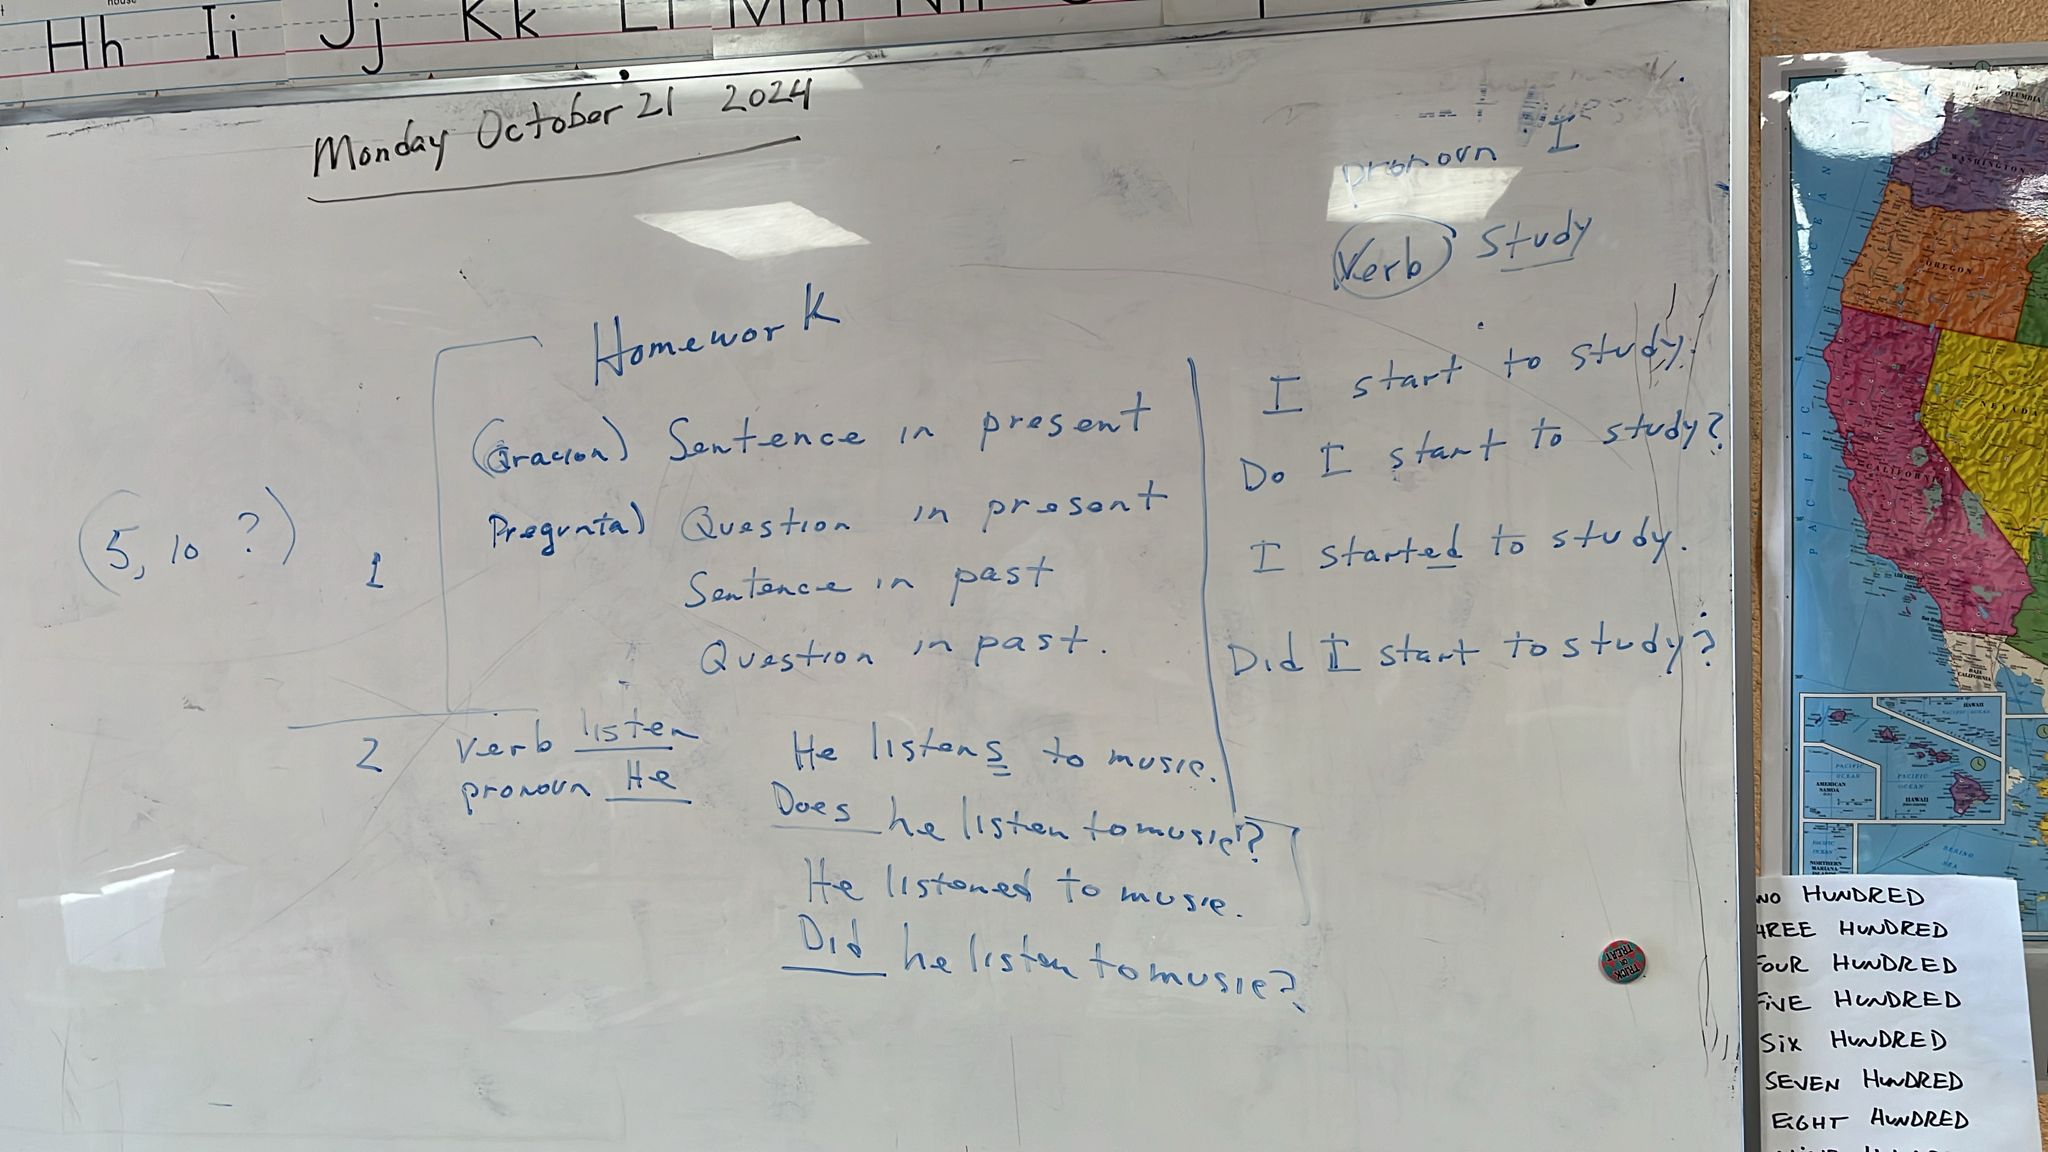 house
Hh Ii Jj Kk Ll Mm Nn
Monday October 21 2024
pronoun I
Verb study
Homework
(Oracion) Sentence in present
Pregunta) Question in present
Sentence in past
Question in past.
(5, 10 ?)
1
I start to study.
Do I start to study?
I started to study.
Did I start to study?
2 verb listen
pronoun He
He listens to music.
Does he listen to music?
He listened to music.
Did he listen to music?
TRICK OR TREAT
WASHINGTON
OREGON
NEVADA
CALIFORNIA
PACIFIC OCEAN
LOS ANGELES
BAJA CALIFORNIA
HAWAII
PACIFIC OCEAN
AMERICAN SAMOA
PACIFIC OCEAN
HAWAII
PACIFIC OCEAN
NORTHERN MARIANA ISLANDS
BERING SEA
WO HUNDRED
HREE HUNDRED
FOUR HUNDRED
FIVE HUNDRED
SIX HUNDRED
SEVEN HUNDRED
EIGHT HUNDRED